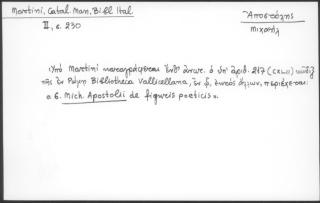 Martini, Catal. Man. Bibl. Ital.
II, σ. 230
Ἀποστόλης
Μιχαήλ
Ὑπὸ Martini καταγράφεται ὁ ὑπ' ἀριθ. 217 (CXLII)
τῆς ἐν Ρώμῃ Bibliotheca Vallicellana, ἐν ᾧ, ἐκτὸς ἄλλων, περιέχεται
« 6. Mich. Apostolii de figuris poeticis ».